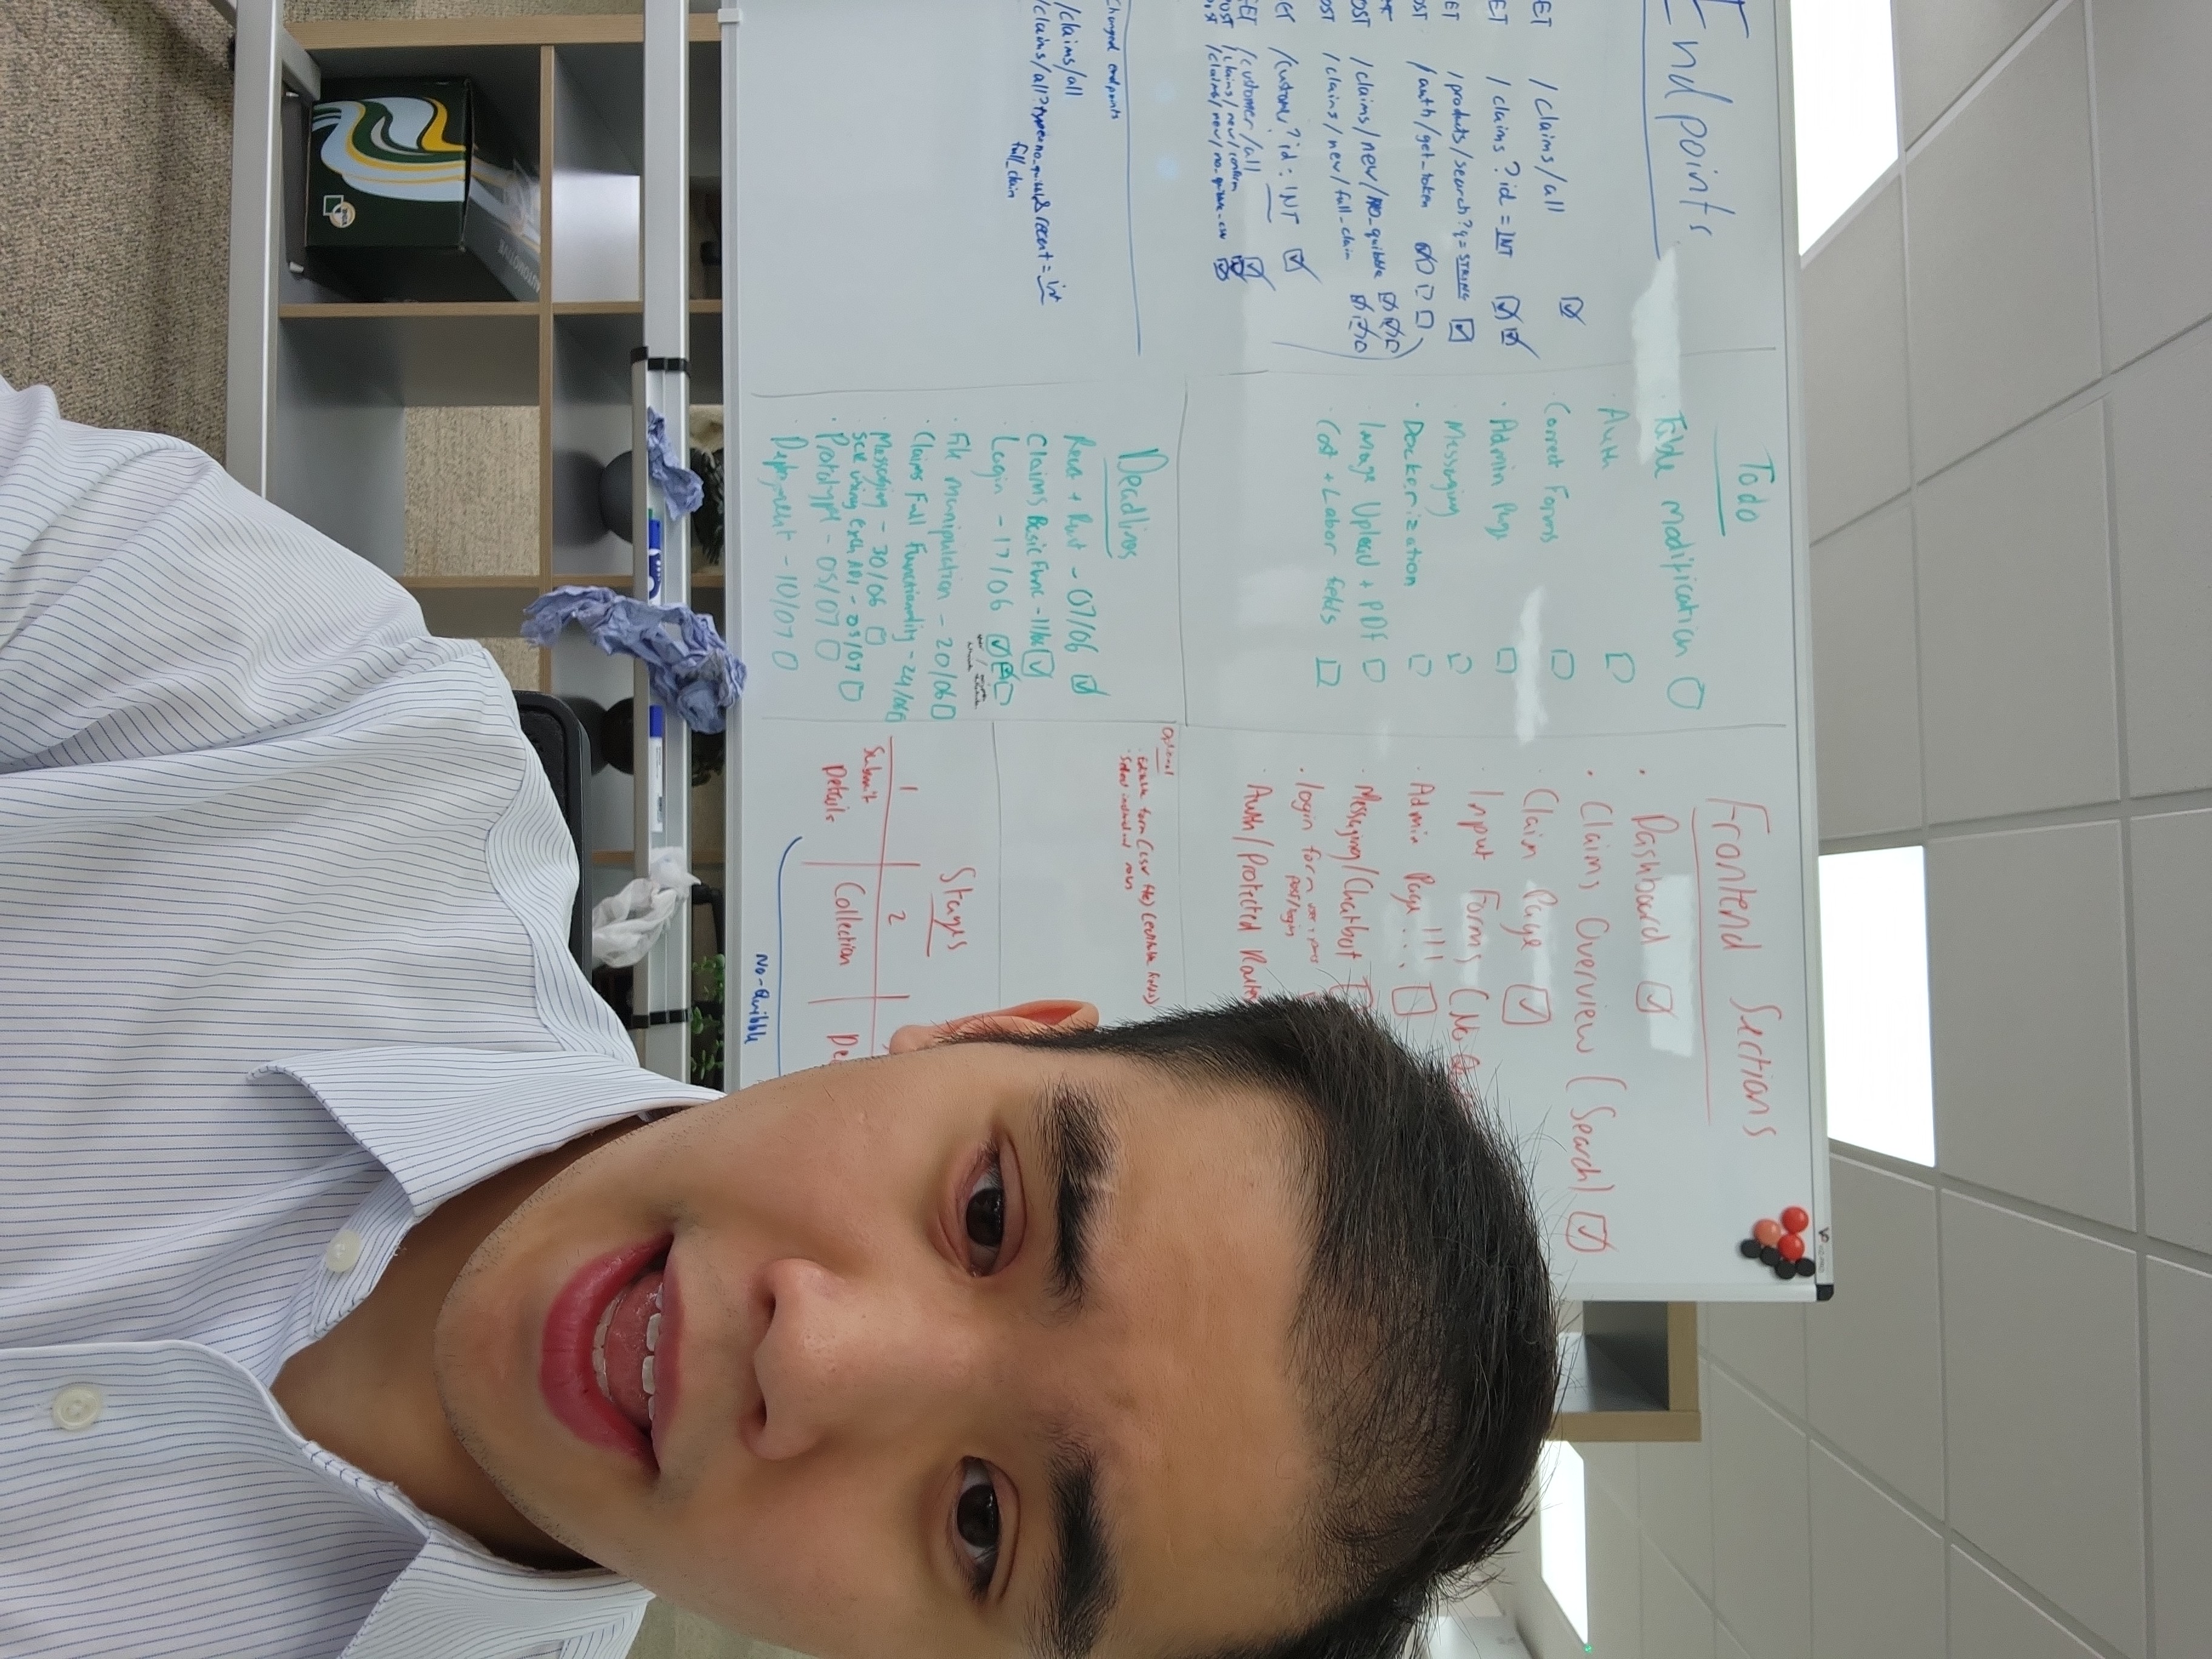 Endpoints
ET /claims/all
ET /claims?id=INT
ET /products/search?q=STRING
OST /auth/get_token
OST /claims/new/no_quibble
OST /claims/new/full_claim
ET /customer?id=INT
GET /customer/all
OST /claims/new/confirm
OST /claims/new/no_quibble_csv
Changed endpoints
/claims/all
/claims/all?type=no_quibble&recent=int
full_claim
Todo
Table modification
Auth
Correct Forms
Admin Page
Messaging
Dockerization
Image Upload + PDF
Cost + Labor fields
Deadlines
React + Rust - 07/06
Claims Basic Func - 11/06
Login - 17/06
File manipulation - 20/06
Claims Full Functionality - 24/06
Messaging - 30/06
using API - 03/07
Prototype - 05/07
Deployment - 10/07
Frontend Sections
Dashboard
Claims Overview (Search)
Claim Page
Input Forms (No Qu
Admin Page!!!
Messaging/Chatbot
login form user + pass
post/login
Auth/Protected Routes
Optional
Editable form (csv file) (editable fields)
Select individual rows
Stages
1 2
Submit Details
Collection
De
No-Quibble
VIZ-PRO
AUTOMOTIVE
DGA